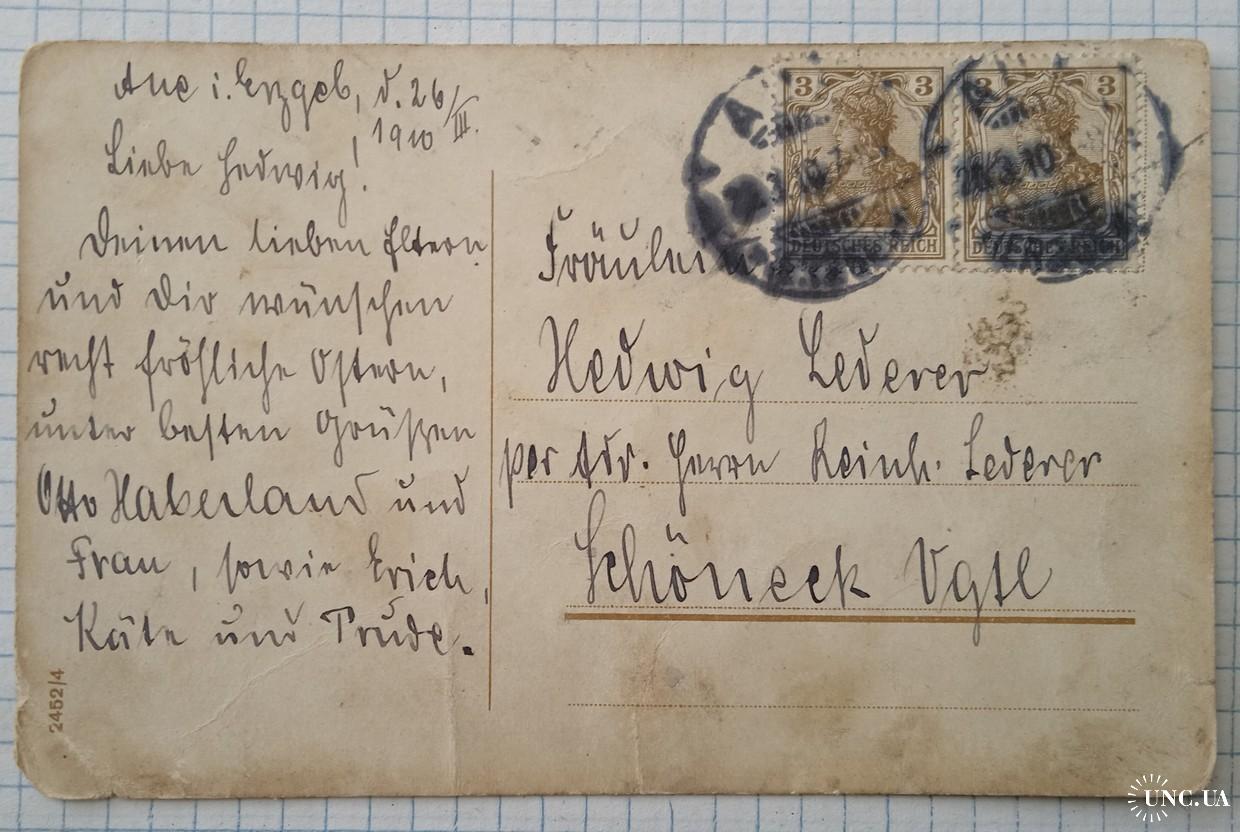 Aue i. Erzgeb, d. 26/III.
1910
Liebe Hedwig!
Deinen lieben Eltern
und Dir wünschen
recht fröhliche Ostern,
unter besten Grüßen
Otto Haberland und
Frau, sowie Erich,
Käte und Trude.
2452/4
3 3
DEUTSCHES REICH
3 3
DEUTSCHES REICH
Fräulein
Hedwig Lederer
per Adr. Herrn Reinh. Lederer
Schöneck Vgtl
UNC.UA